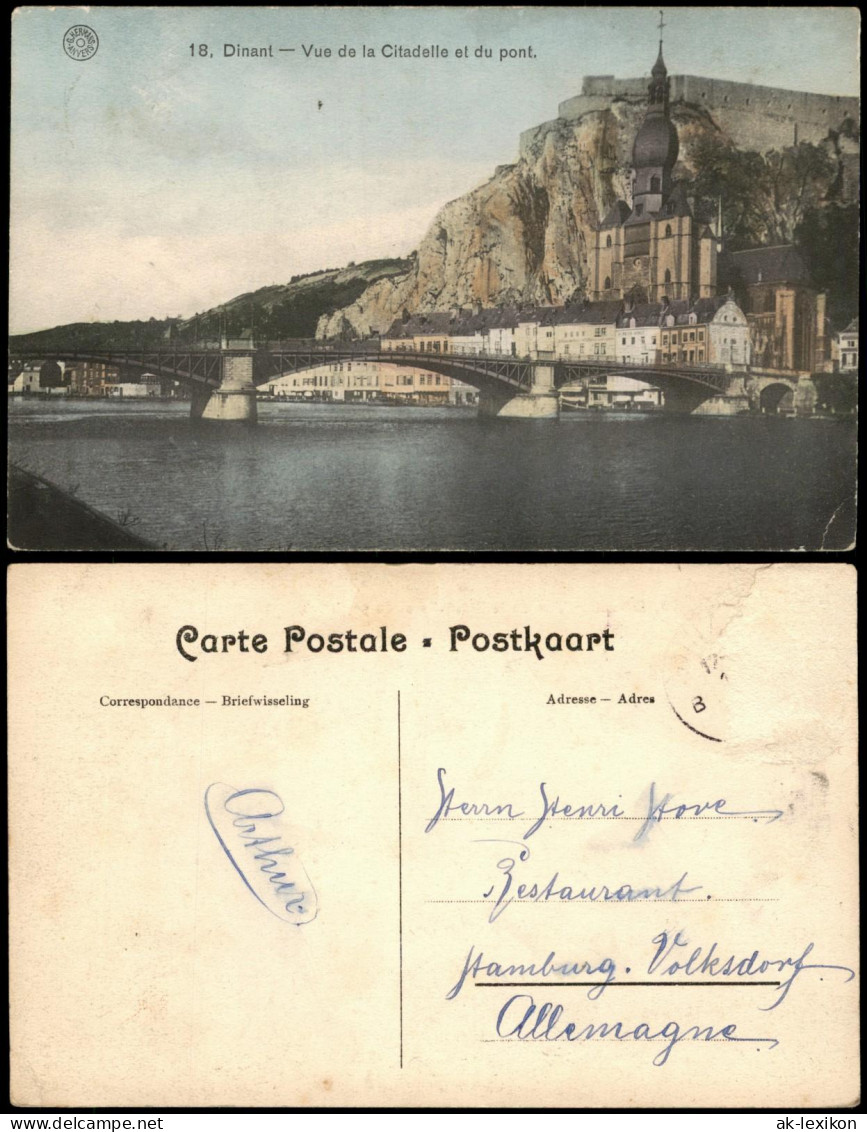 G. HERMANS
ANVERS
18, Dinant — Vue de la Citadelle et du pont.
Carte Postale - Postkaart
Correspondance — Briefwisseling
Adresse — Adres
B
Arthur
Herrn Henri Hove
Restaurant.
Hamburg. Volksdorf
Allemagne
ak-lexikon